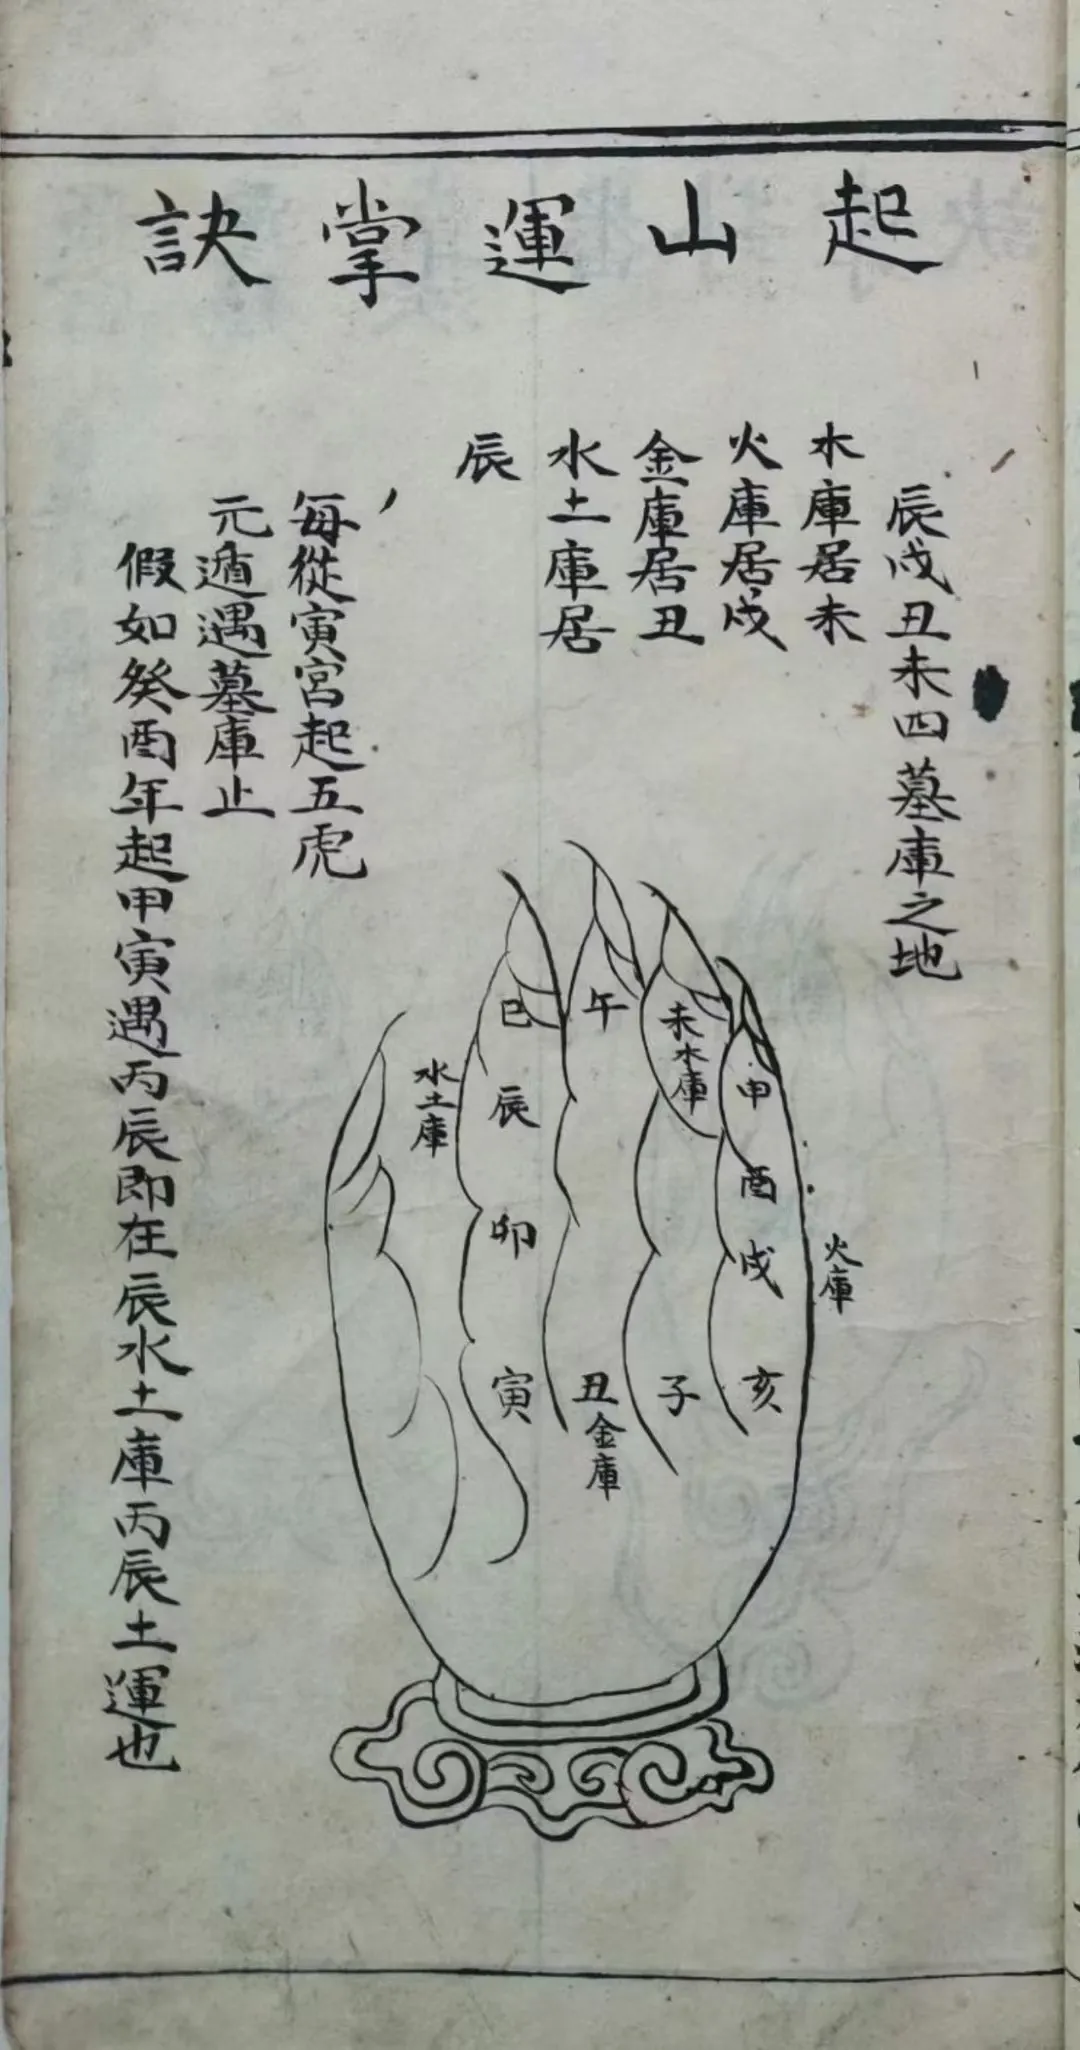 起山運掌訣
辰戌丑未四墓庫之地
木庫居未
火庫居戌
金庫居丑
水土庫居
辰
每從寅宮起五虎
元遁遇墓庫止
假如癸酉年起甲寅遇丙辰即在辰水土庫丙辰土運也
巳
午
未木庫
申
水土庫
辰
酉
卯
戌
火庫
寅
丑金庫
子
亥